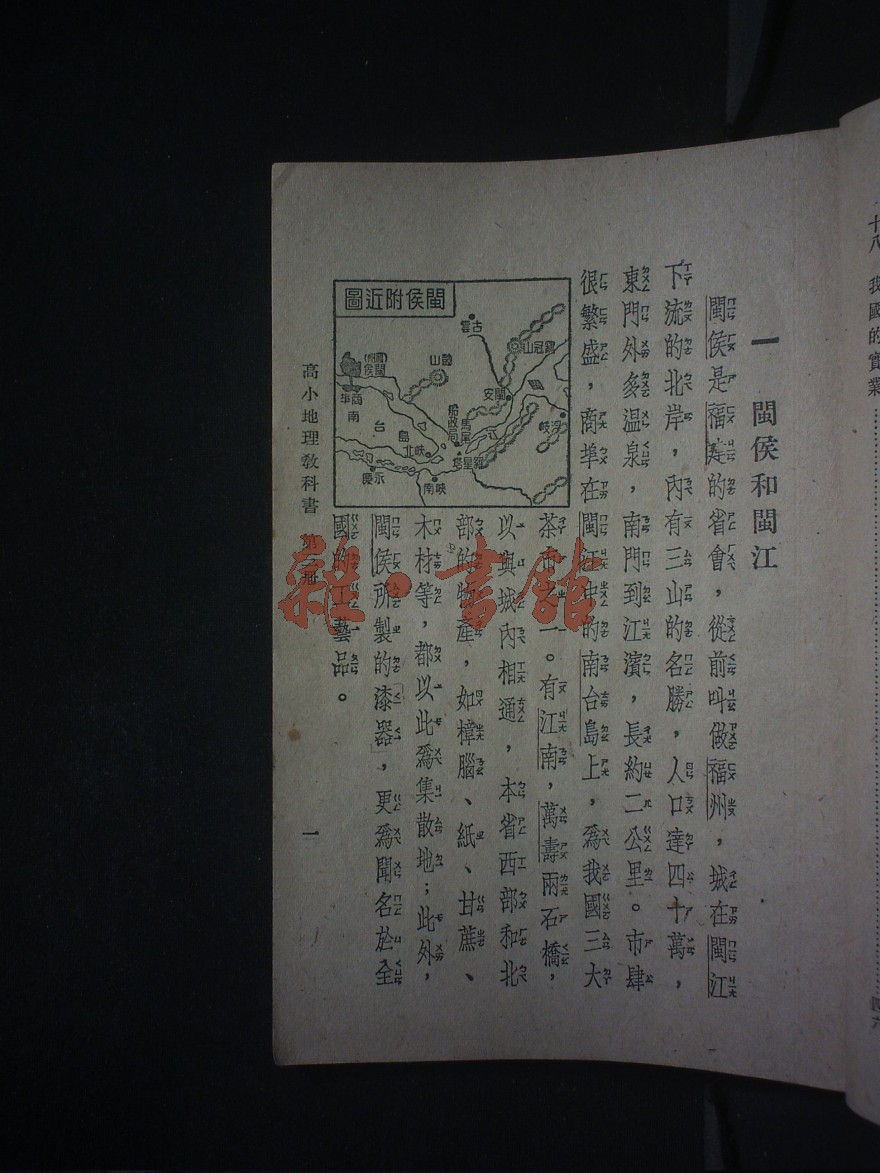 一　閩侯和閩江
閩侯是福建的省會，從前叫做福州，城在閩江
下流的北岸，內有三山的名勝，人口達四十萬，
東門外多温泉，南門到江濱，長約二公里。市肆
很繁盛，商埠在閩江中的南台島上，為我國三大
茶市之一。有江南，萬壽兩石橋，
以與城內相通，本省西部和北
部的物產，如樟腦、紙、甘蔗、
木材等，都以此爲集散地；此外，
閩侯所製的「漆器」，更爲聞名於全
國的工藝品。
閩侯附近圖
古雲
鼓山
閩侯
商埠
南台島
閩安
馬尾
船政局
羅星塔
峽北
峽南
浮岐
高小地理教科書　第二冊
一
十八　我國的實業
四六
雜·書館